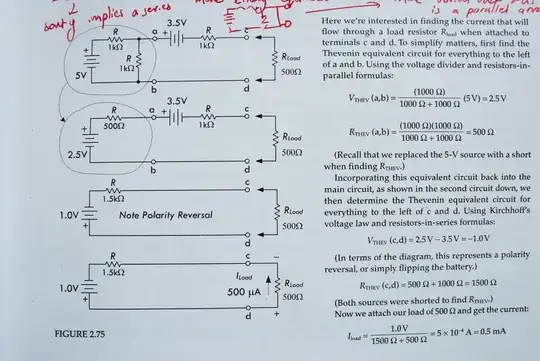 implies a series
is a parallel
R
1kΩ
R
1kΩ
5V
a
3.5V
R
1kΩ
c
RLoad
500Ω
b
d
R
500Ω
2.5V
a
3.5V
R
1kΩ
c
RLoad
500Ω
b
d
R
1.5kΩ
1.0V
Note Polarity Reversal
c
RLoad
500Ω
d
R
1.5kΩ
1.0V
c
ILoad
500 μA
RLoad
500Ω
d
FIGURE 2.75
Here we're interested in finding the current that will
flow through a load resistor Rload when attached to
terminals c and d. To simplify matters, first find the
Thevenin equivalent circuit for everything to the left
of a and b. Using the voltage divider and resistors-in-
parallel formulas:
VTHEV (a,b) = (1000 Ω) / 1000 Ω + 1000 Ω (5V) = 2.5 V
RTHEV (a,b) = (1000 Ω)(1000 Ω) / 1000 Ω + 1000 Ω = 500 Ω
(Recall that we replaced the 5-V source with a short
when finding RTHEV.)
Incorporating this equivalent circuit back into the
main circuit, as shown in the second circuit down, we
then determine the Thevenin equivalent circuit for
everything to the left of c and d. Using Kirchhoff's
voltage law and resistors-in-series formulas:
VTHEV (c,d) = 2.5 V – 3.5 V = –1.0 V
(In terms of the diagram, this represents a polarity
reversal, or simply flipping the battery.)
RTHEV (c,d) = 500 Ω + 1000 Ω = 1500 Ω
(Both sources were shorted to find RTHEV.)
Now we attach our load of 500 Ω and get the current:
Iload = 1.0 V / 1500 Ω + 500 Ω = 5 × 10⁻⁴ A = 0.5 mA